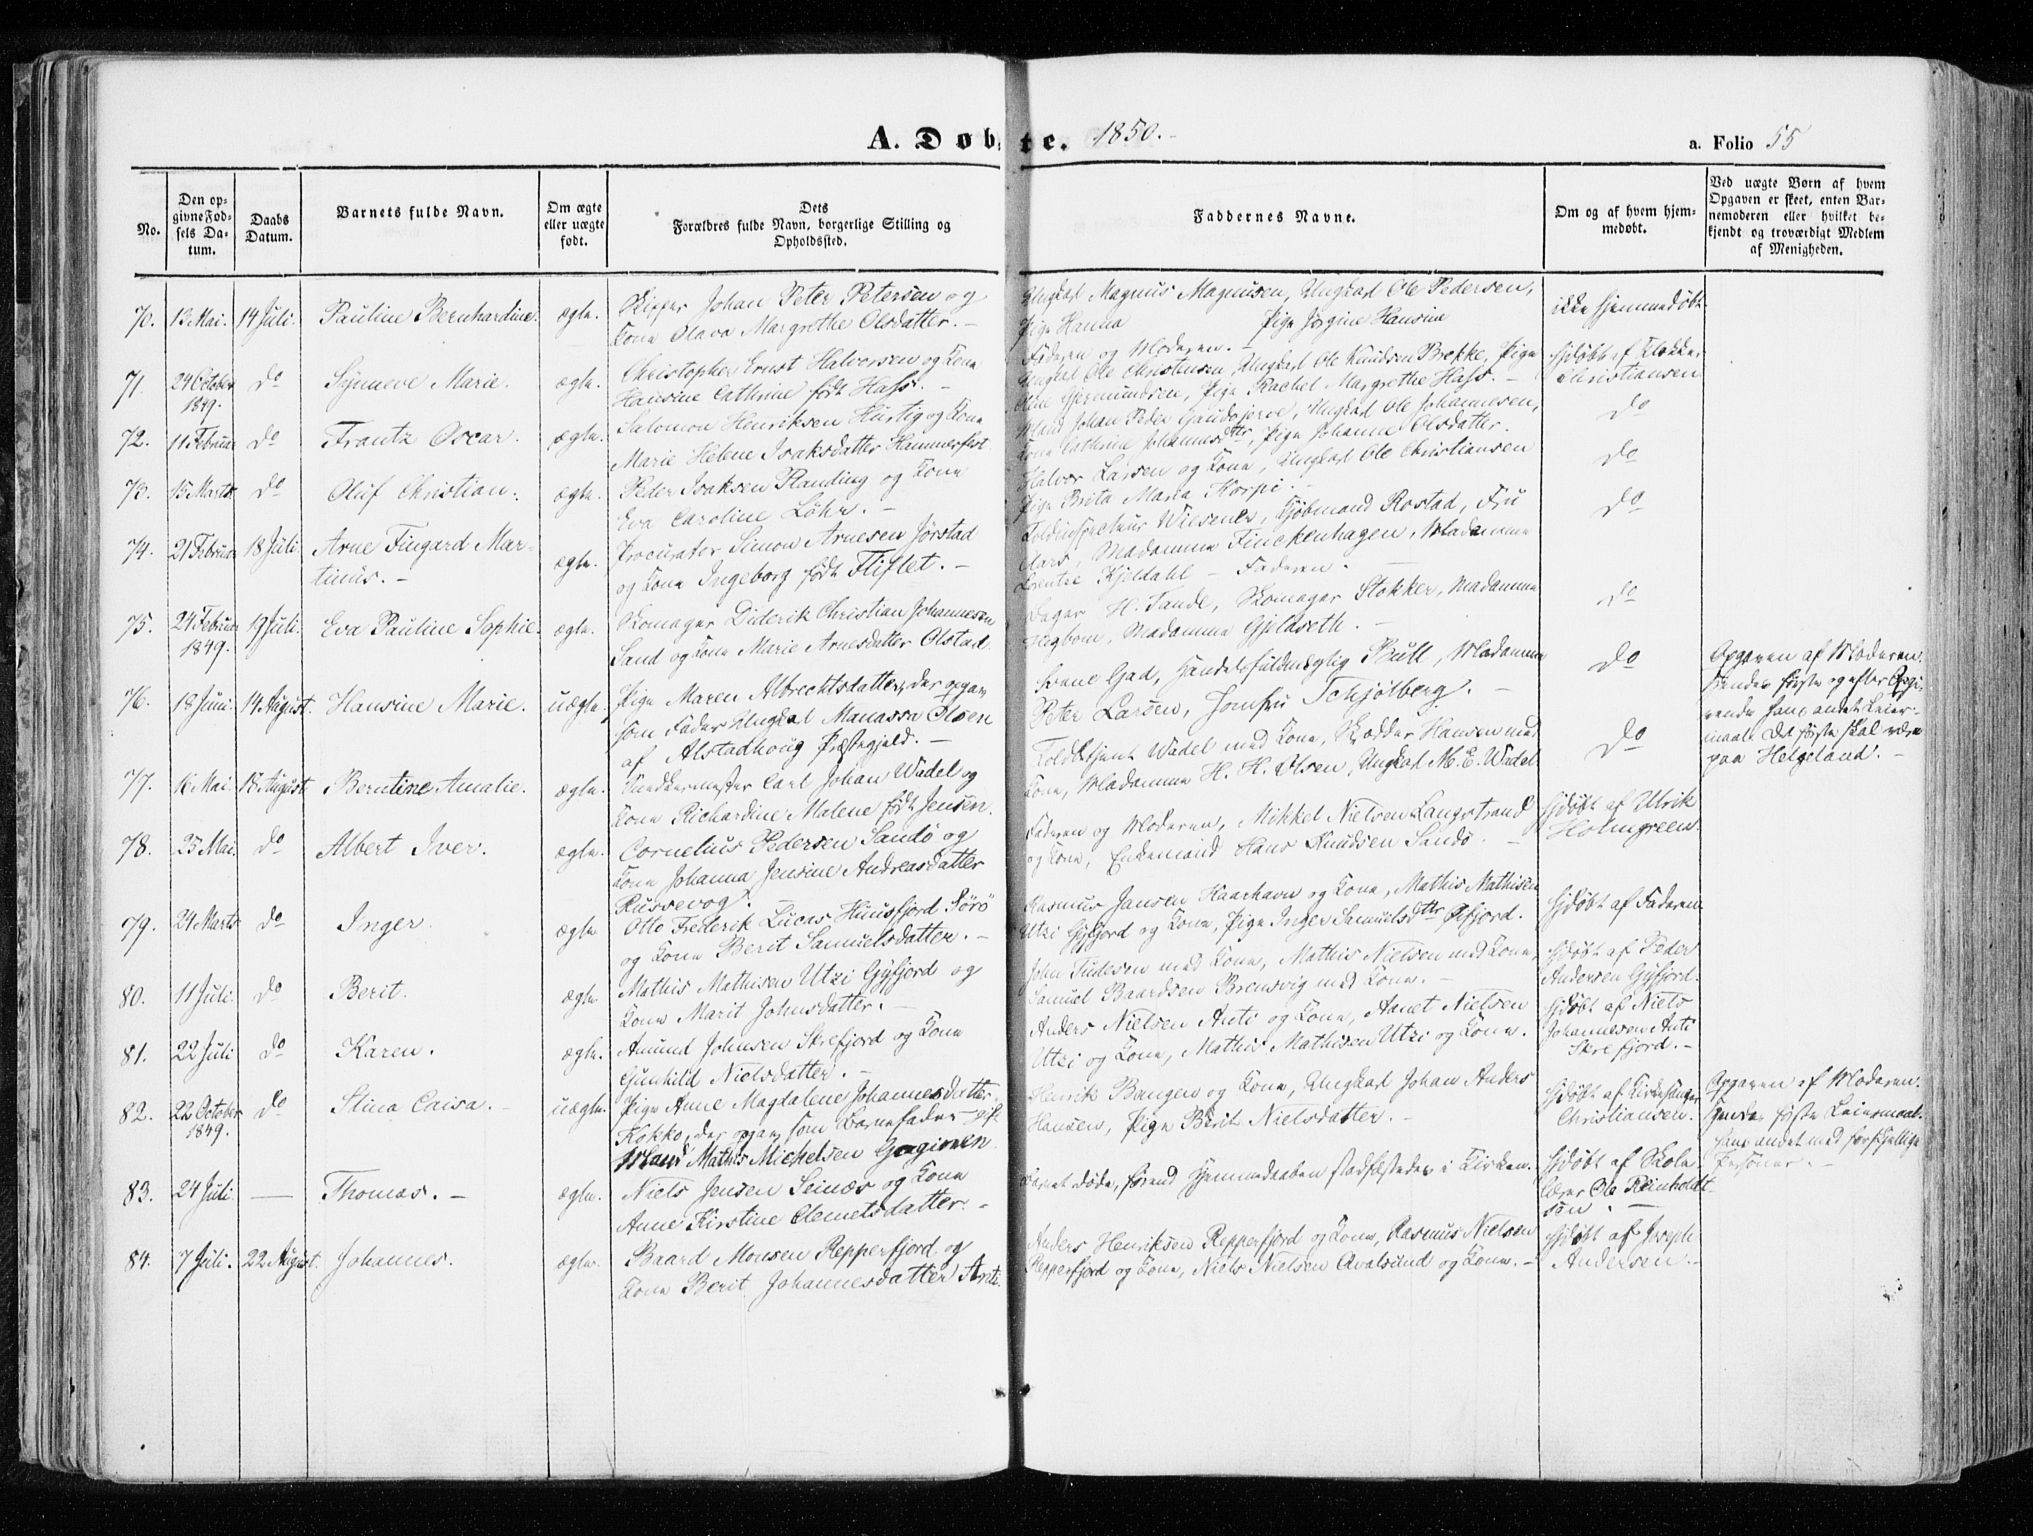 A. Døbte. 1850.
a. Folio 55
No.
Den opgivne Fødsels Datum.
Daabs Datum.
Barnets fulde Navn.
Om ægte eller uægte født.
Dets Forældres fulde Navn, borgerlige Stilling og Opholdssted.
Faddernes Navne.
Om og af hvem hjemmedøbt.
Ved uægte Børn af hvem Opgaven er skeet, enten Barnemoderen eller hvilket bekjendt og troværdigt Medlem af Menigheden.
70. 13 Mai. 14 Juli. Pauline Bernhardine. ægte.
Skipper Johan Peter Petersen og
Kone Olava Margrethe Olsdatter. -
Ungkarl Magnus Magnusen, Ungkarl Ole Pedersen,
Pige Hanna Pige Jørgine Hansine
Faderen og Moderen. -
ikke hjemmedøbt
71. 24 October 1849. do Synneve Marie. ægte.
Christopher Ernst Halvorsen og Kone
Hansine Cathrine født Hass. -
Ungkarl Ole Christensen, Ungkarl Ole Knudsen Brekke, Pige
Oline Gjermundsen, Pige Rachel Margrethe Hass. -
hjdøbt af Klokker
Christiansen
72. 11 Februar do Frantz Oscar. ægte.
Salomon Henriksen Hurtig og Kone
Marie Helene Isaksdatter Hammerfest
Mand Johan Peder , Ungkarl Ole Johannesen,
Kone Cathrine Johannesdttr, Pige Johanne Olsdatter.
do
73. 15 Marts. do Oluf Christian. ægte.
Peder Isaksen Planding og Kone
Eva Caroline Löhr. -
Halvor Larsen og Kone, Ungkarl Ole Christiansen
Pige Brita Maria Korpi. -
do
74. 21 Februar 18 Juli. Arne Fingard Mar-
tinus. - ægte.
Procurator Simon Arnesen Jörstad
og Kone Ingeborg født Fliflet. -
Toldinspecteur Wiesener, Kjøbmand Rostad, Fru
Aars, Madamme Finckenhagen, Madamme
Lorentze Kjeldahl - Faderen. -
do
75. 24 Februar 1849. 19 Juli. Eva Pauline Sophie. ægte.
Skomager Diderik Christian Johannesen
Sand og Kone Marie Arnesdatter Olstad
Bager H. Sande, Skomager Stokker, Madamme
Hegbom, Madamme Gjelseth. -
do
76. 18 Juni. 14 August. Hansine Marie. uægte.
Pige Maren Albrechtsdatter, der opgav
som Fader Ungkarl Manassa Olsen
af Alstadhoug Præstegjeld. -
Svane Gad, Handelsfuldmægtig Bull, Madamme
Peter Larsen, Jomfru Tchjølberg. -
do
Opgaven af Moderen.
hendes første og efter Opgi-
vende hans andet Leier-
maal. Det første skal være
paa Helgeland. -
77. 16 Mai. 15 August Berntine Amalie. ægte.
Snedkermester Carl Johan Wadel og
Kone Richardine Malene født Jensen.
Toldbetjent Wadel med Kone, Skrædder Hansen med
Kone, Madamme H. H. Olsen, Ungkarl M. E. Wadel
do
78. 25 Mai. do Albert Iver. ægte.
Cornelius Pedersen Sandø og
Kone Johanna Jensine Andreasdatter
Russevog.
Faderen og Moderen, Mikkel Nielsen Langstrand
og Kone, Enkemand Hans Knudsen Sandø. -
hjdøbt af Ulrik
Holmgreen.
79. 24 Marts do Inger. ægte.
Otto Frederik Lucas Huusfjord Sørø
og Kone Berit Samuelsdatter. -
Rasmus Jansen Haarhavn og Kone, Mathis Mathisen
Utzi Gyfjord og Kone, Pige Inger Samuelsdttr Øfjord.
hjdøbt af Faderen
80. 11 Juli. do Berit. ægte.
Mathis Mathisen Utzi Gyfjord og
Kone Marit Johnsdatter. -
John Tudesen med Kone, Mathis Nielsen med Kone,
Samuel Baardsen Bremsvig med Kone. -
hjdøbt af Peder
Andersen Gyfjord.
81. 22 Juli do Karen. ægte.
Amund Johnsen Skrefjord og Kone
Gunhild Nielsdatter. -
Anders Nielsen Anti og Kone, Aanet Nielsen
Utzi og Kone, Mathis Mathisen Utzi og Kone.
hjdøbt af Niels
Johannesen Anti
Skrefjord. -
82. 22 October 1849. do Stina Caisa. - uægte.
Pige Anne Magdalene Johannesdatter
Kokko, der opgav som Barnefader gift
Mand Mathis Michelsen
Henrik Bangen og Kone, Ungkarl Johan Anders
Hansen, Pige Berit Nielsdatter. -
hjdøbt af Kirkesanger
Christiansen.
Opgaven af Moderen.
hendes første Leiermaal.
hans andet med forskjellige
Personer. -
83. 24 Juli. - Thomas. - ægte.
Niels Jensen Seinæs og Kone
Anne Kirstine Clemetsdatter. -
Barnet døde, førend Hjemmedaaben stadfæstedes i Kirken.
hjdøbt af Skole-
lærer Ole Reinholdt-
sen. -
84. 7 Juli. 22 August. Johannes. ægte.
Baard Monsen Repperfjord og
Kone Berit Johannesdatter Anti.
Anders Henriksen Repperfjord og Kone, Rasmus Nielsen
Repperfjord og Kone, Niels Nielsen Qvalsund og Kone. -
hjdøbt af Joseph
Andersen. -